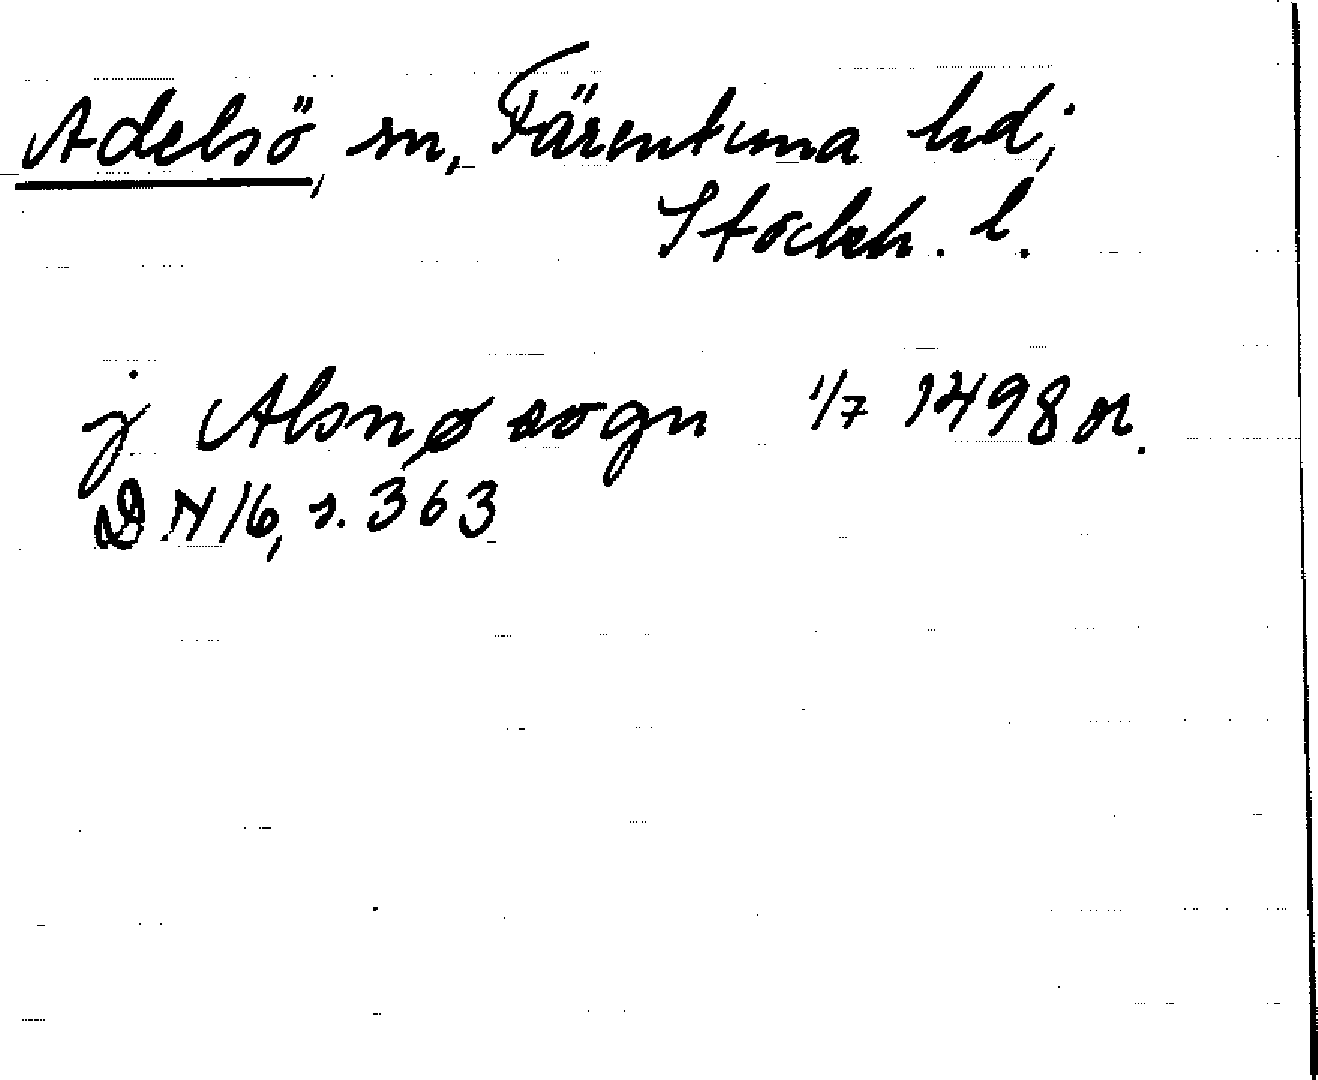 Adelsö, sn, Färentuna hd,
Stockh. l.
j Alsnø sogn 1/7 1498 or.
DN 16, s. 363